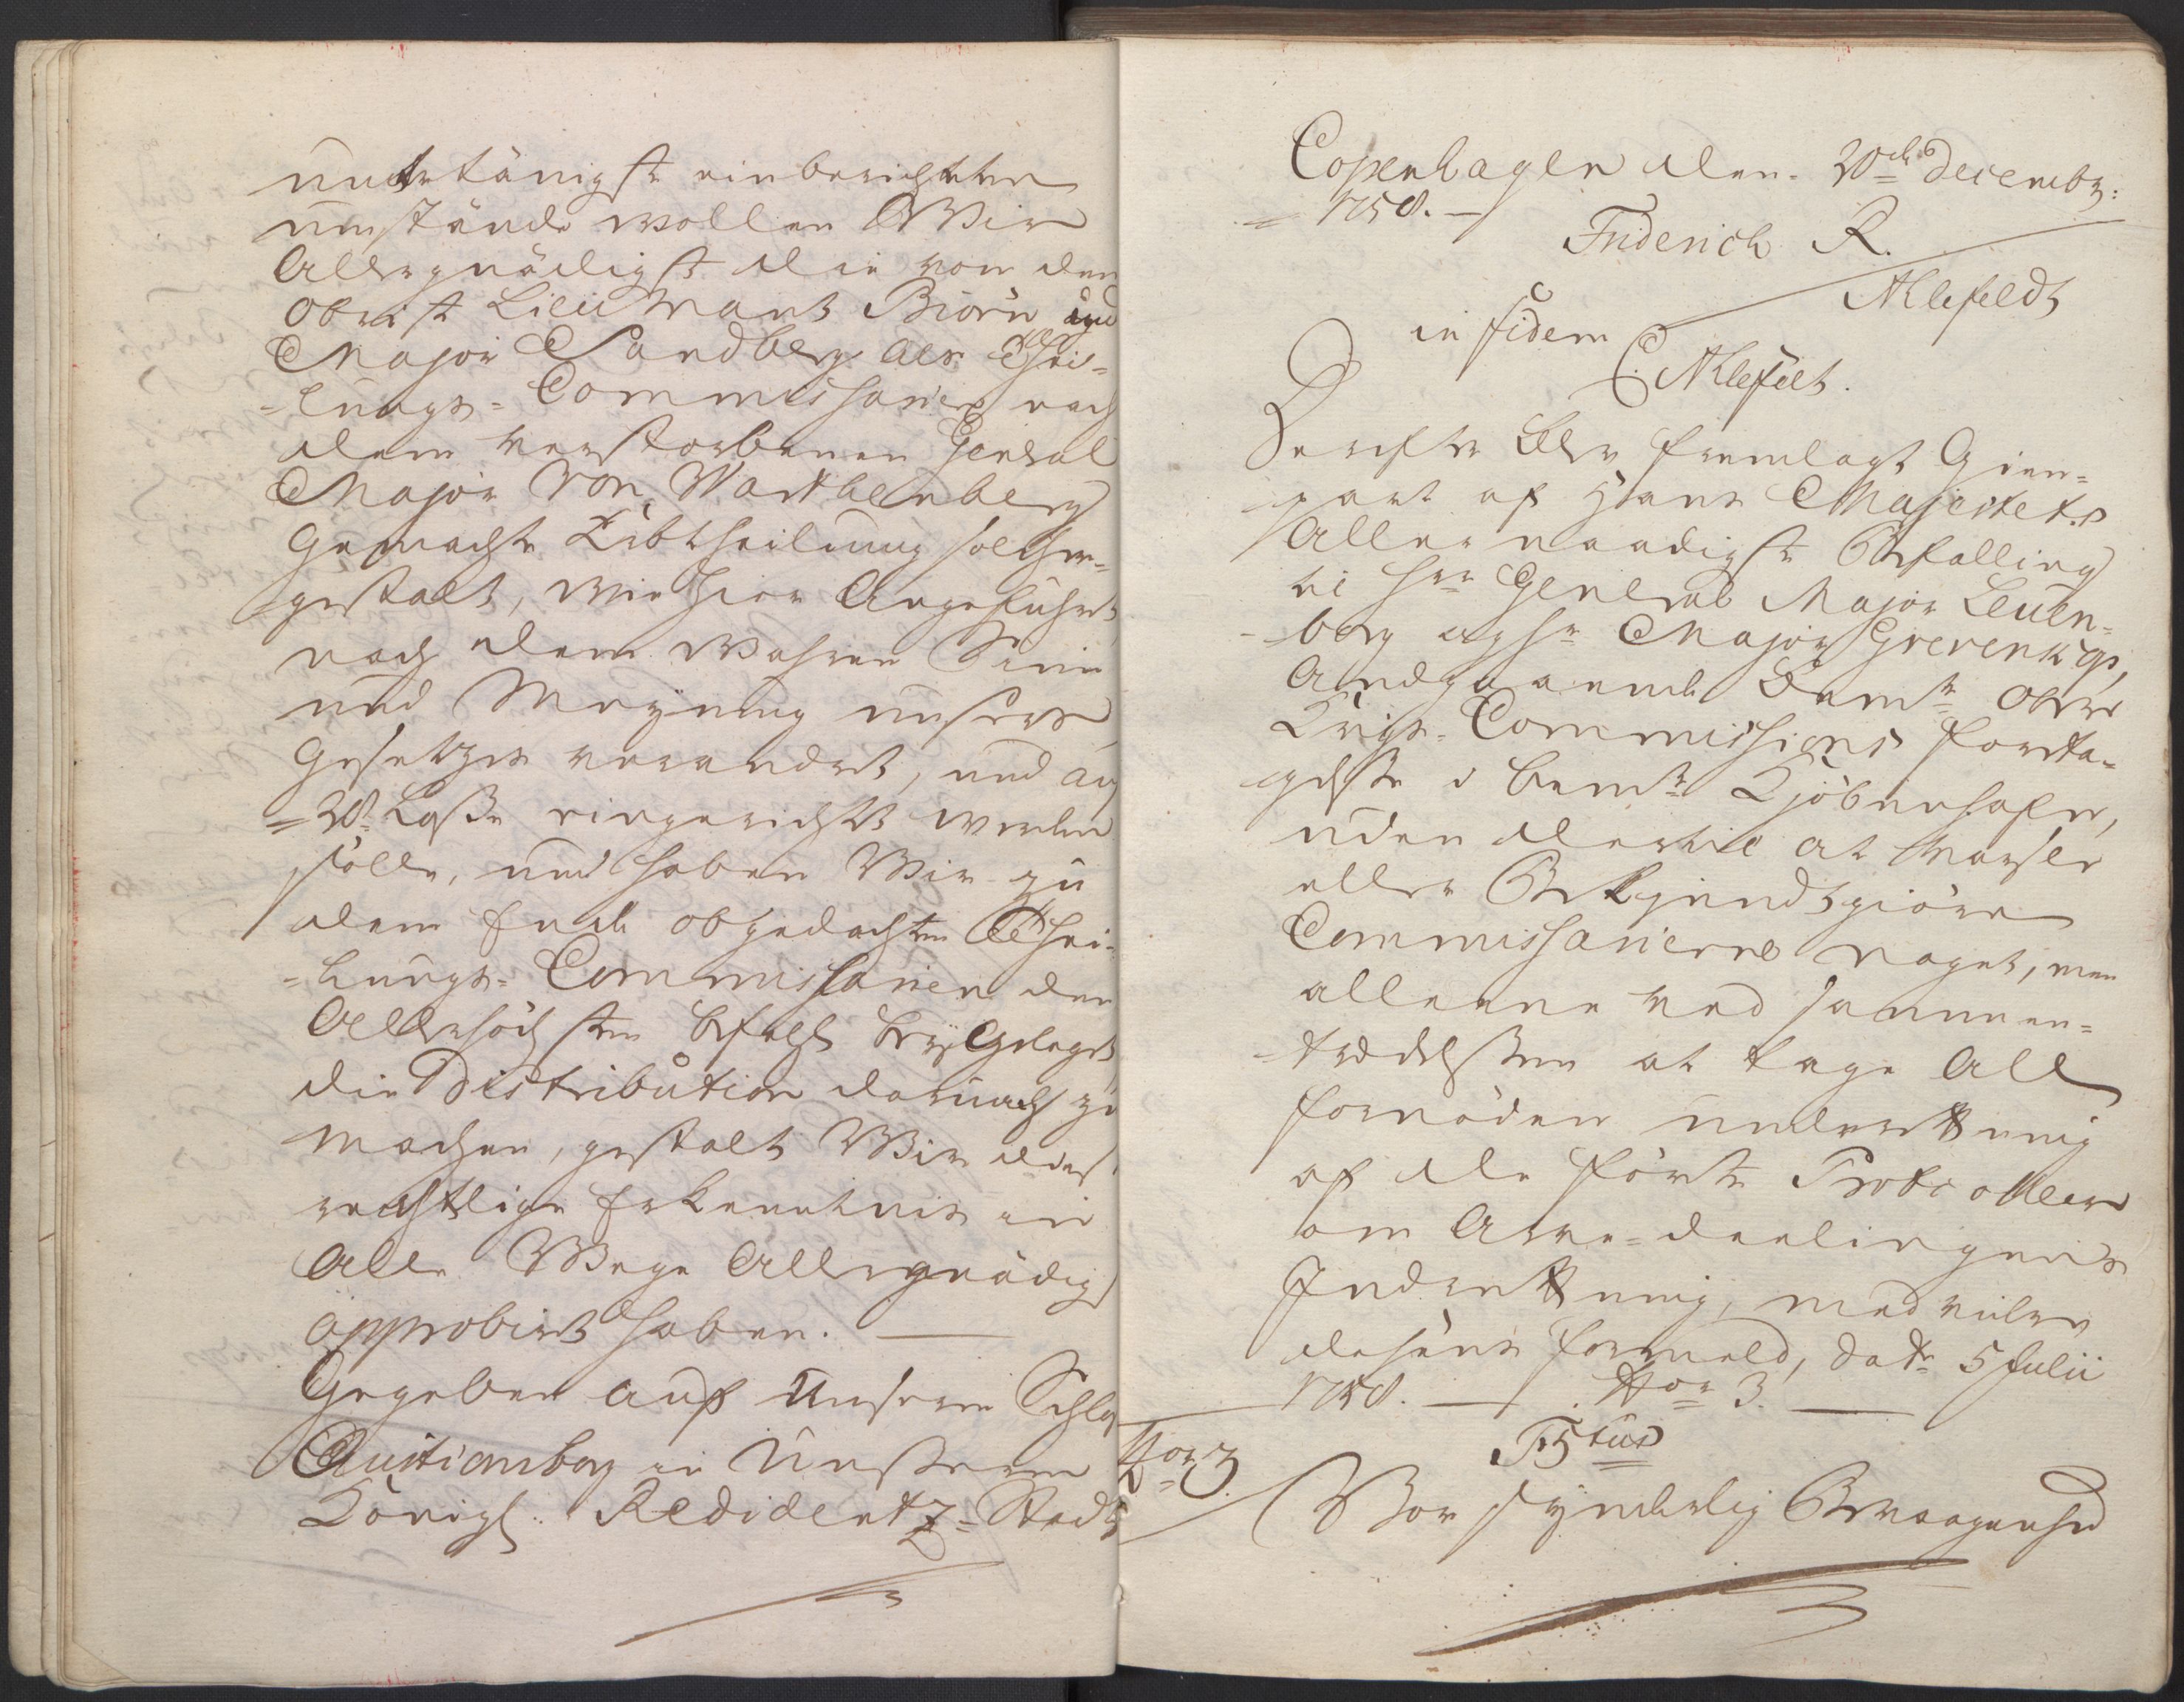 untertänigst einberichteten
umstände wollen Wir
Allergnädigst die von den
Obrist Lieutnant Biörn und
Major Sandberg als Thei-
=lungs=Commissarien nach
dem verstorbenen General
Major von Wartbenberg
Gemachte Erbtheilung solcher-
gestalt, wie hier Angeführt
nach dem wahren Sinn
und Meynung unsers
Gesetzes verandret, und auf
solle, und haben Wir zu
dem Ende obgedachten Thei-
=lungs=Commissarien den
Allerhöchsten befehl beygelegt
die Distribution darnach zu
machen, gestalt Wir dies
rechtlige Erkenntnis in
Alle Wege Allergnädigst
approbirt haben. —
Gegeben auf Unserm Schloß
in Unserm
Königl: Redidentz=Stadt
Copenhagen den 20de Decembr:
1758. —
Friderich R.
Ahlefeldt
in fidem
C. Ahlefelt.
Derefter blev fremlagt Gien-
part af Hans Majestets
Allernaadigste Befalling
til Hrr General Major Leuen-
berg og Hr Major Grevenkop,
Andgaaende bemte Over
Krigs-Commissions foreta-
gelse i bemte Kjöbenhafn,
uden dertil at varsle
eller Bekjendtgiöre
Commissarierne noget, men
alleene ved sammen-
trædelsen at tage All
fornöden underretning
af de förte Protocoller
om Arve-deelingens
Indretning, med videre
desens formeld, date 5 Julii
1758. — Nor 3. —
F5tus
Nor 3.
Vor synderlig Bevaagenhed